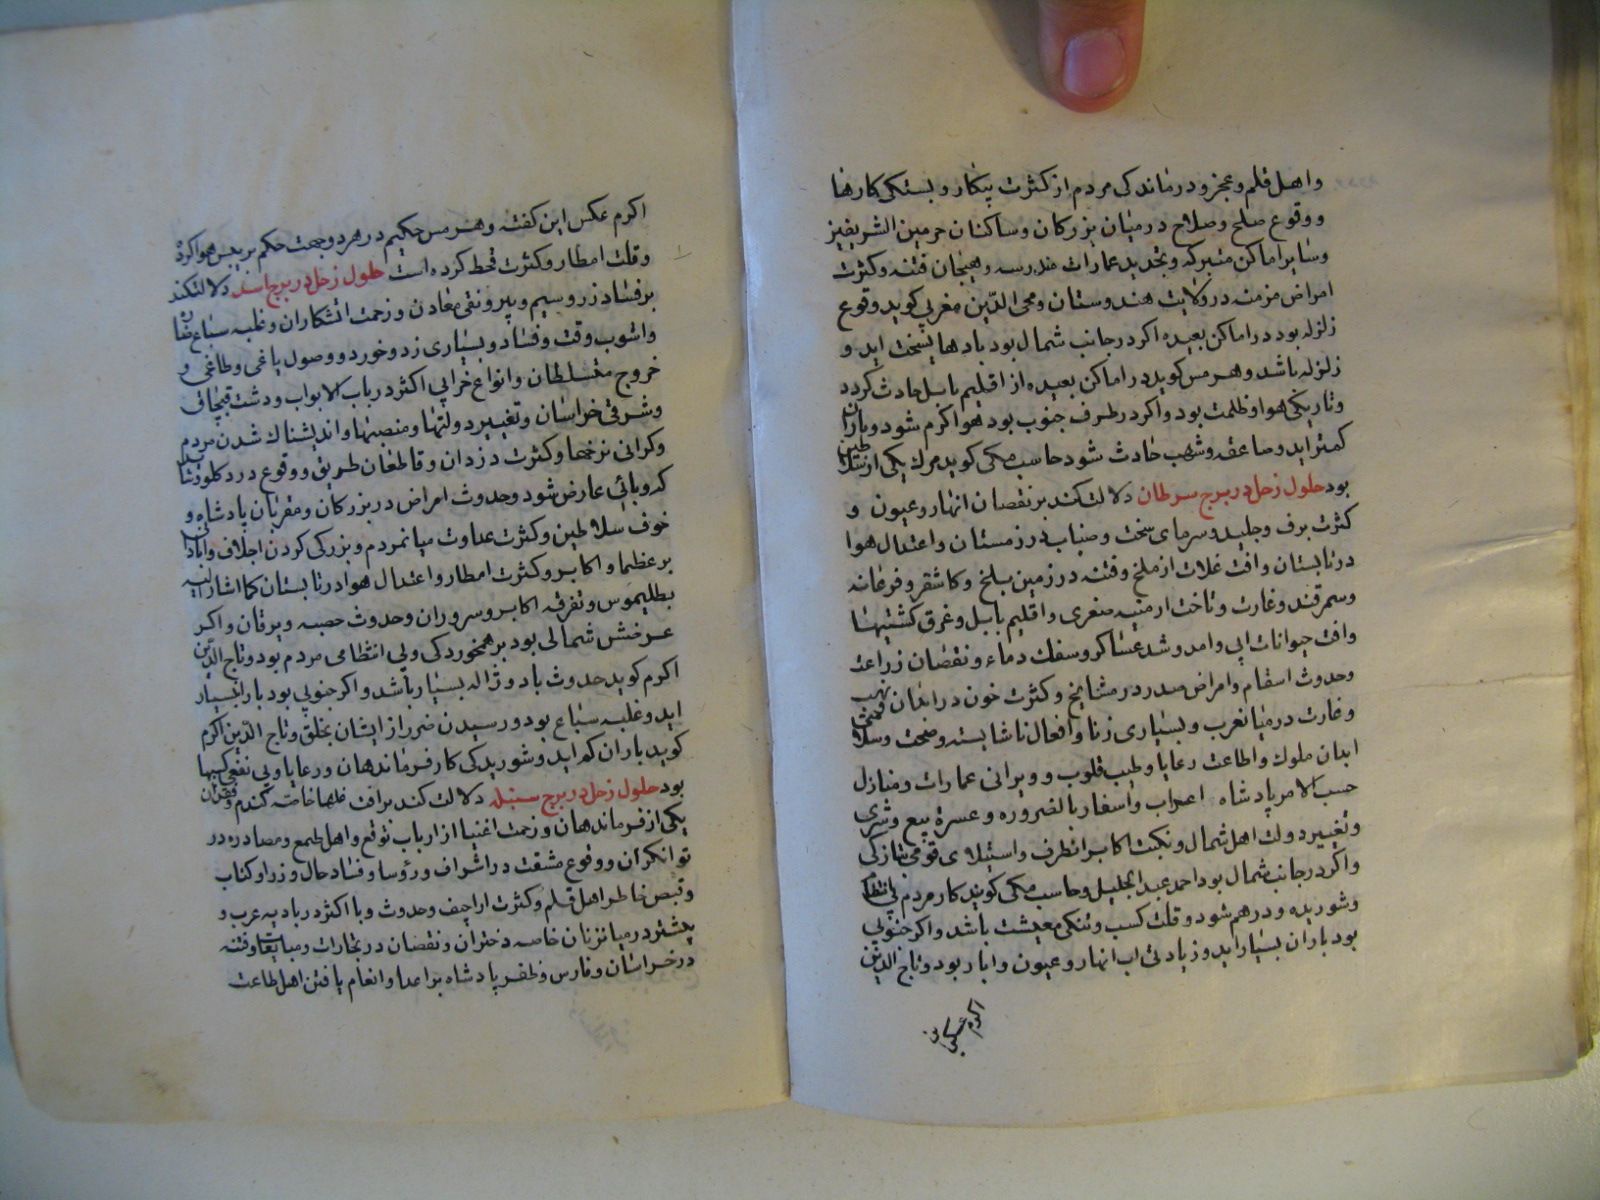 واهل قلم و عجز و درماندکی مردم از کثرت پیکار و بستکی کارها
و وقوع صلح و صلاح در میان بزرکان و ساکنان حرمین الشریفین
و سایر اماکن متبرکه و تجدید عمارات مدرسه و هیجان فتنه و کثرت
امراض مزمنه در ولایت هندوستان و محی الدین مغربی کوید وقوع
زلزله بود در اماکن بعیده اکر در جانب شمال بود بادها سخت اید و
زلزله باشد و هرمس کوید در اماکن بعیده از اقلیم بابل حادث کردد
و تاریکی هوا و ظلمت بود و اکر در طرف جنوب بود هوا کرم شود و باران
کمتر اید و صاعقه و شهب حادث شود حاسب مکی کوید مرك یکی از سلاطین
بود حلول زحل در برج سرطان دلالت کند بر نقصان انهار و عیون و
کثرت برف و جلید و سرمای سخت و ضباب در زمستان و اعتدال هوا
در تابستان و افت غلات از ملخ و فتنه در زمین بلخ و کاشغر و فرغانه
و سمرقند و غارت و تاخت ارمنیه صغری و اقلیم بابل و غرق کشتیها
و افت حیوانات ابی و امد و شد عساکر و سفك دماء و نقصان زراعت
و حدوث اسقام و امراض صدر در مشایخ و کثرت خون در ابدان نهب
و غارت در میان عرب و بسیاری زنا و افعال ناشایسته و صحت و سلامتی
ابدان ملوك و اطاعت رعایا و طیب قلوب و ویرانی عمارات و منازل
حسب الامر پادشاه اعراب و اسفار بالضروره و عسرة بیع و شری
و تغییر دولت اهل شمال و نکبت اکابر انطرف و استیلای قومی بتازکی
و اکر در جانب شمال بود احمد عبد الجلیل و حاسب مکی کویند کار مردم بی انتظام
و شوریده و در هم شود و قلت کسب و تنکی معیشت باشد و اکر جنوبی
بود باران بسیار اید و زیادتی اب انهار و عیون و ابار بود و تاج الدین
اکرم عکس این
اکرم عکس این کفته و هرمس حکیم در هر دو جهت حکم بر یبس هوا کرده
و قلت امطار و کثرت قحط کرده است حلول زحل در برج اسد دلالت کند
بر فساد زر و سیم و بیرونقی معادن و زحمت اتشکاران و غلبه سباع ضار
و اشوب وقت و فساد و بسیاری زد و خورد و وصول یاغی و طاغی و
خروج متسلطان و انواع خرابی اکثر در باب الابواب و دشت قبچاق
و شرقی خراسان و تغییر دولتها و منصبها و اندیشناك شدن مردم
و کرانی نرخها و کثرت دزدان و قاطعان طریق و وقوع درد کلو
که وبائی عارض شود و حدوث امراض در بزرکان و مقربان پادشاه و
خوف سلاطین و کثرت عداوت میانمردم و بزرکی کردن اجلاف و ادانی
بر عظما و اکابر و کثرت امطار و اعتدال هوا در تابستان کما اشار الیه
بطلیموس و تفرقه اکابر و سروران و حدوث حصبه و یرقان و اکر
عرضش شمالی بود بر همخوردکی و بی انتظامی مردم بود و تاج الدین
اکرم کوید حدوث باد و ژاله بسیار باشد و اکر جنوبی بود باران بسیار
اید و غلبه سباع بود و رسیدن ضرر از ایشان بخلق و تاج الدین اکرم
کوید باران کم اید و شوریدکی کار فرماندهان و رعایا و بی نفعی کسبها
بود حلول زحل در برج سنبله دلالت کند بر افت غلها خاصه کندم و فقدان
یکی از فرماندهان و زحمت اغنیا از ارباب توقع و اهل طمع و مصادره در
توانکران و وقوع مشقت در اشراف و رؤسا و فساد حال وزرا و کتاب
و قبض خاطر اهل قلم و کثرت اراجیف و حدوث وبا اکثر در بادیه عرب و
بیشتر در میان زنان خاصه دختران و نقصان در تجارات و مبایعا و فتنه
در خراسان و فارس و ظفر پادشاه بر اعدا و انعام یافتن اهل طاعت